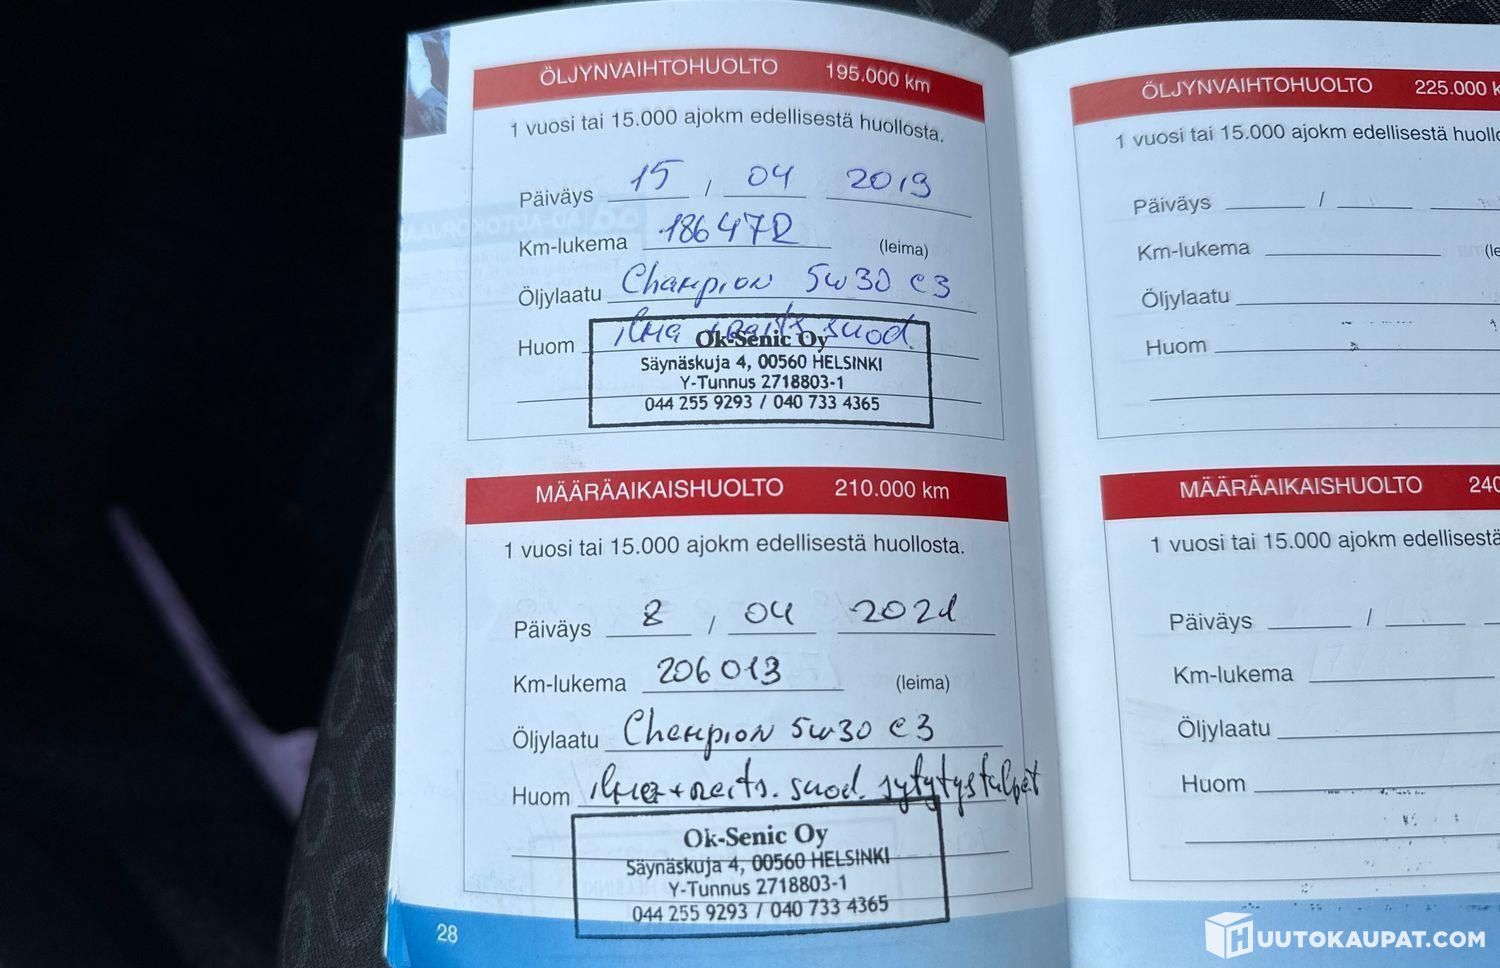 ÖLJYNVAIHTOHUOLTO 195.000 km
1 vuosi tai 15.000 ajokm edellisestä huollosta.
Päiväys 15 / 04 2019
Km-lukema 186472 (leima)
Öljylaatu Champion 5w30 c3
Huom ilma + raits suod.
Ok-Senic Oy
Säynäskuja 4, 00560 HELSINKI
Y-Tunnus 2718803-1
044 255 9293 / 040 733 4365
MÄÄRÄAIKAISHUOLTO 210.000 km
1 vuosi tai 15.000 ajokm edellisestä huollosta.
Päiväys 8 / 04 2021
Km-lukema 206013 (leima)
Öljylaatu Champion 5w30 c3
Huom ilma + raits. suod. sytytystulpat
Ok-Senic Oy
Säynäskuja 4, 00560 HELSINKI
Y-Tunnus 2718803-1
044 255 9293 / 040 733 4365
28
ÖLJYNVAIHTOHUOLTO 225.000 k
1 vuosi tai 15.000 ajokm edellisestä huollo
Päiväys /
Km-lukema (le
Öljylaatu
Huom
MÄÄRÄAIKAISHUOLTO 240
1 vuosi tai 15.000 ajokm edellisestä
Päiväys /
Km-lukema
Öljylaatu
Huom
HUUTOKAUPAT.COM